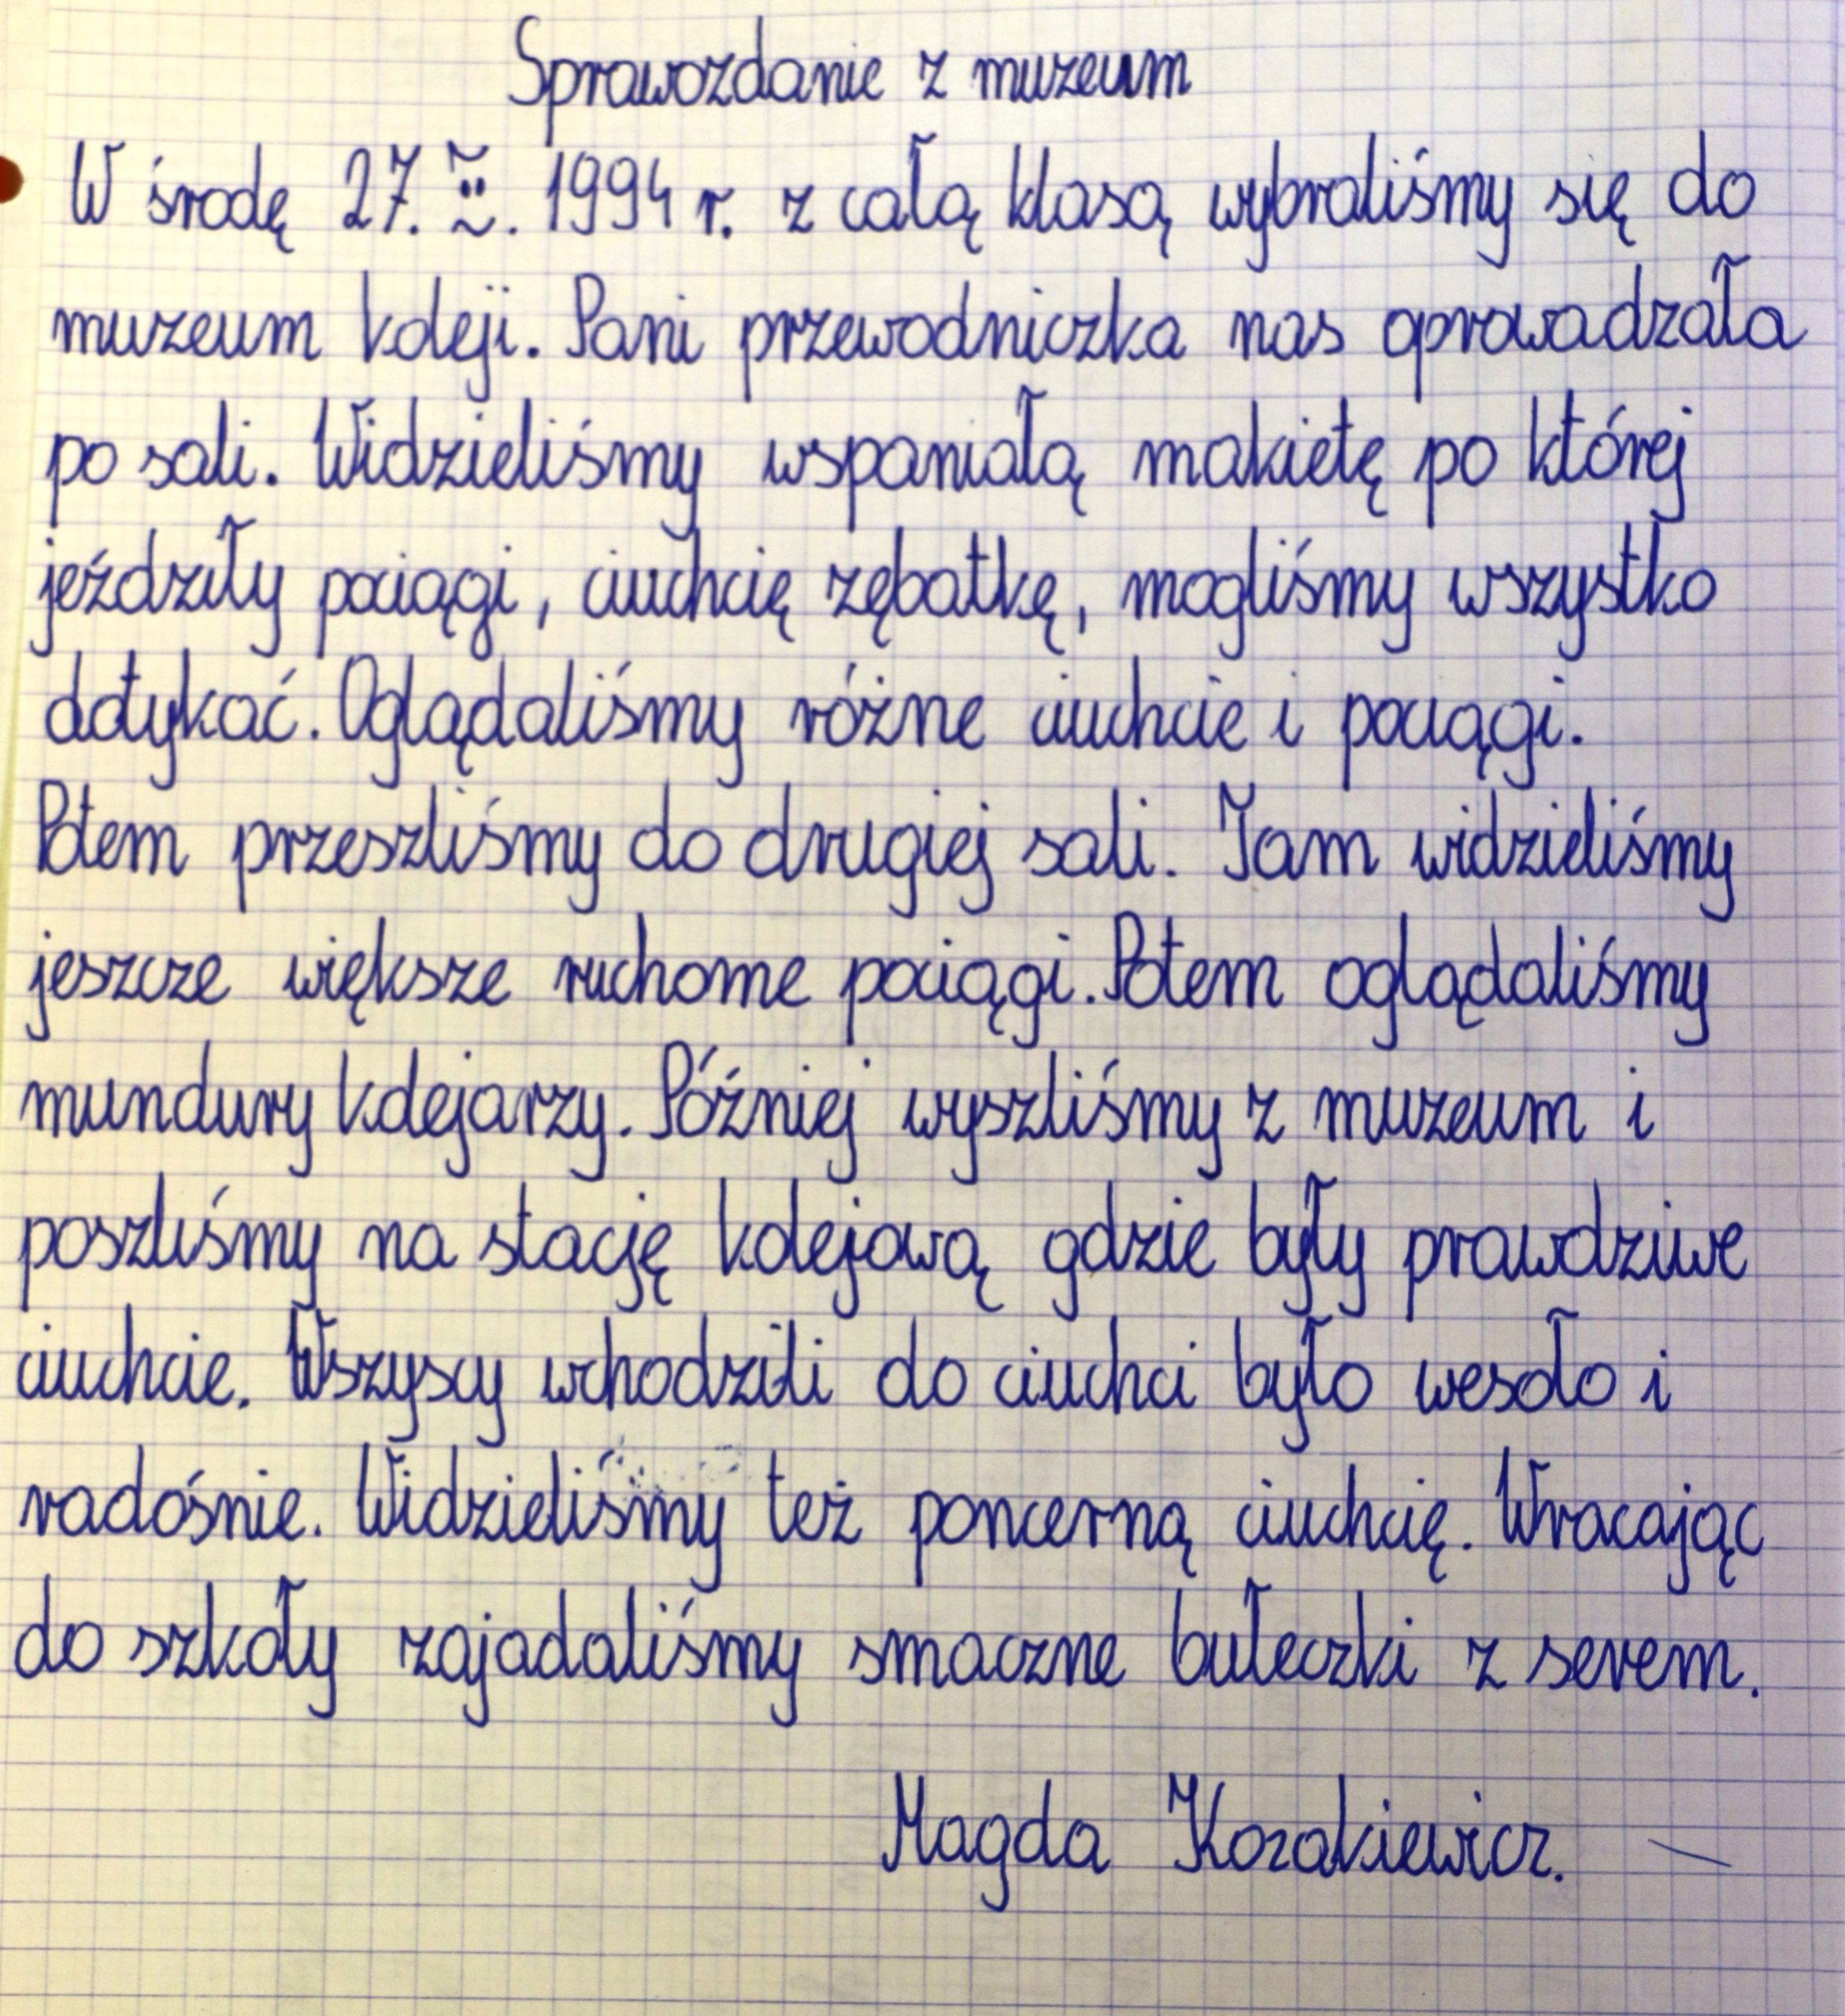 Sprawozdanie z muzeum
W środę 27. 1994 r. z całą klasą wybraliśmy się do
muzeum koleji. Pani przewodniczka nas oprowadzała
po sali. Widzieliśmy wspaniałą makietę po której
jeździły pociągi, ciuchcię zębatkę, mogliśmy wszystko
dotykać. Oglądaliśmy różne ciuchcie i pociągi.
Potem przeszliśmy do drugiej sali. Tam widzieliśmy
jeszcze większe ruchome pociągi. Potem oglądaliśmy
mundury kolejarzy. Później wyszliśmy z muzeum i
poszliśmy na stację kolejową gdzie były prawdziwe
ciuchcie. Wszyscy wchodzili do ciuchci było wesoło i
radośnie. Widzieliśmy też pancerną ciuchcię. Wracając
do szkoły zajadaliśmy smaczne bułeczki z serem.
Magda Kozakiewicz.